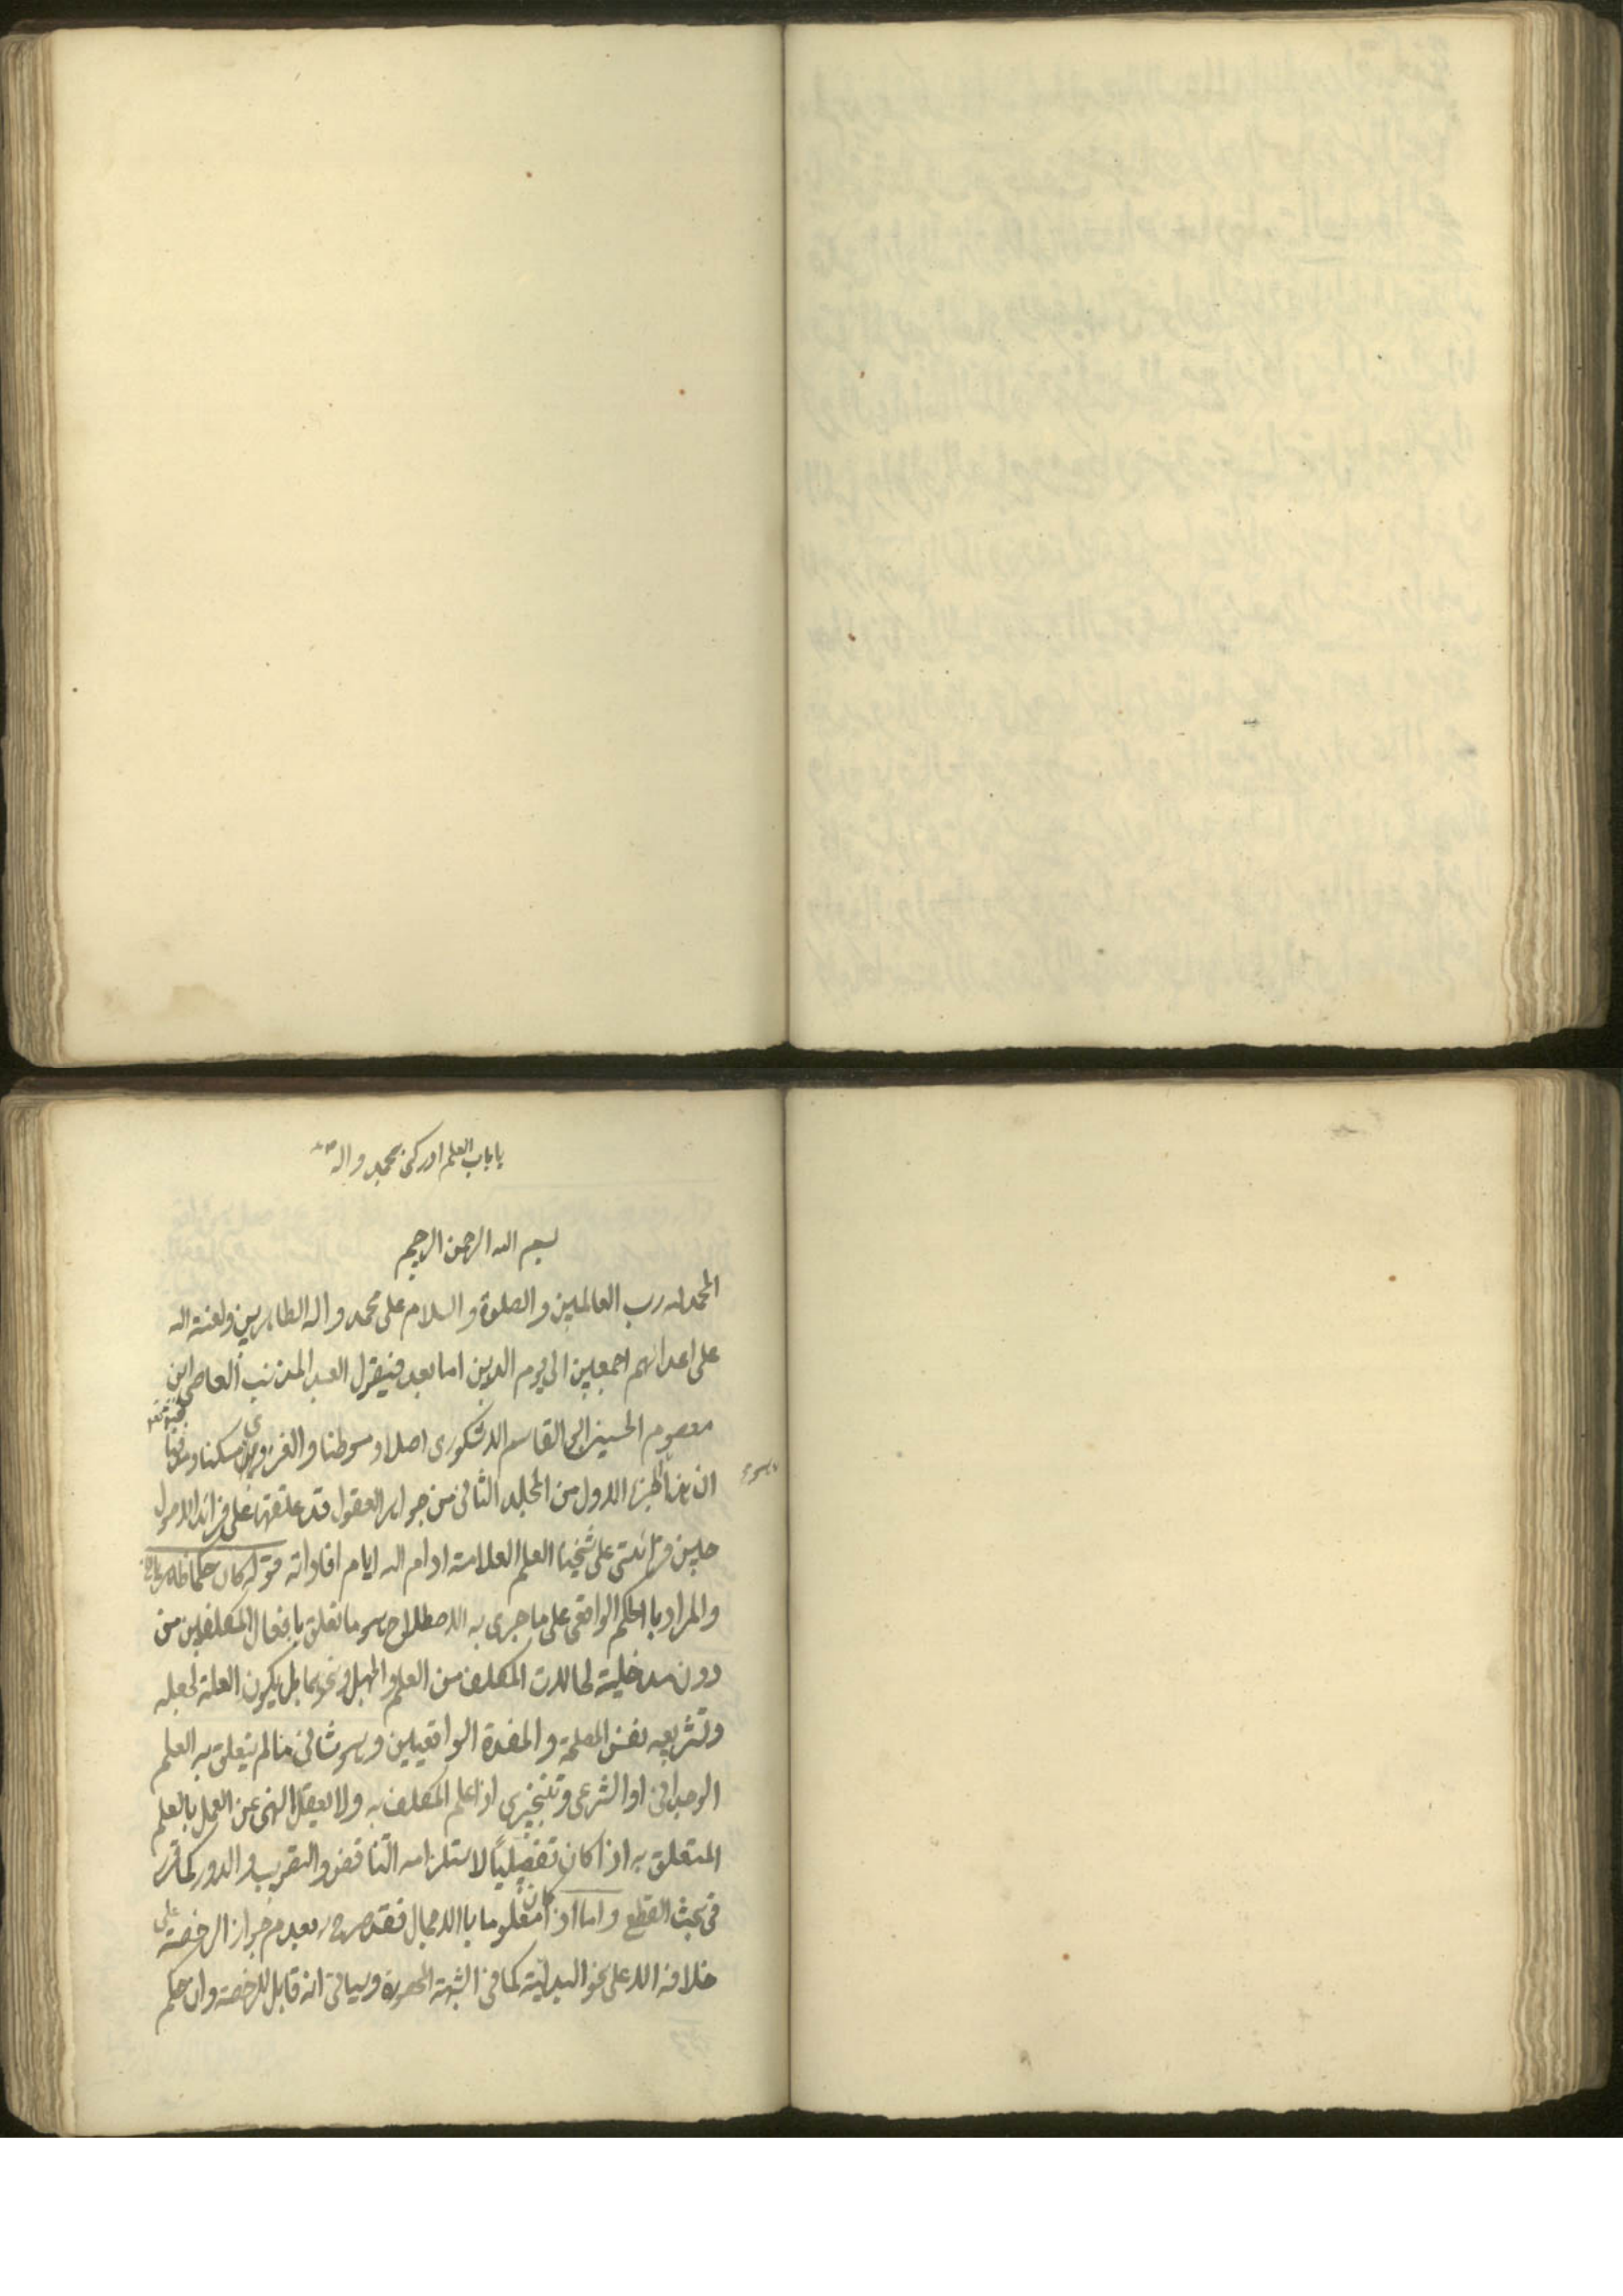 يا باب العلم ادركني بمحمد واله
بسم الله الرحمن الرحيم
الحمد لله رب العالمين والصلوة والسلام على محمد واله الطاهرين ولعنة الله
على اعدائهم اجمعين الى يوم الدين اما بعد فيقول العبد المذنب العاصي ابن
معصوم الحسيني ابو القاسم اصلا وموطنا والقزويني مسكنا
ان هذا الجزء الاول من المجلد الثاني من جواهر العقول قد علقتها على فرائد الاصول
حين قرائتي على شيخنا العلم العلامة ادام الله ايام افاداته قوله كان حكما ظاهريا
والمراد بالحكم الواقعي على ما جرى به الاصطلاح هو ما تعلق بافعال المكلفين من
دون مدخلية لحالات المكلف من العلم والجهل ونحوهما بل يكون العلة لجعله
وتشريعه نفس المصلحة والمفسدة الواقعيين وهو شاني ما لم يتعلق به العلم
الوجداني او الشرعي وتنجيزي اذا علم المكلف به ولا يعقل النهي عن العمل بالعلم
المتعلق به اذا كان تفصيليا لاستلزامه التناقض والدور كما قرر
في بحث القطع واما اذا كان معلوما بالاجمال فقد صرح بعدم جواز الرخصة على
خلافه الا على نحو البدلية كما في الشبهة المحصورة وسياتي انه قابل للرخصة وان حكم